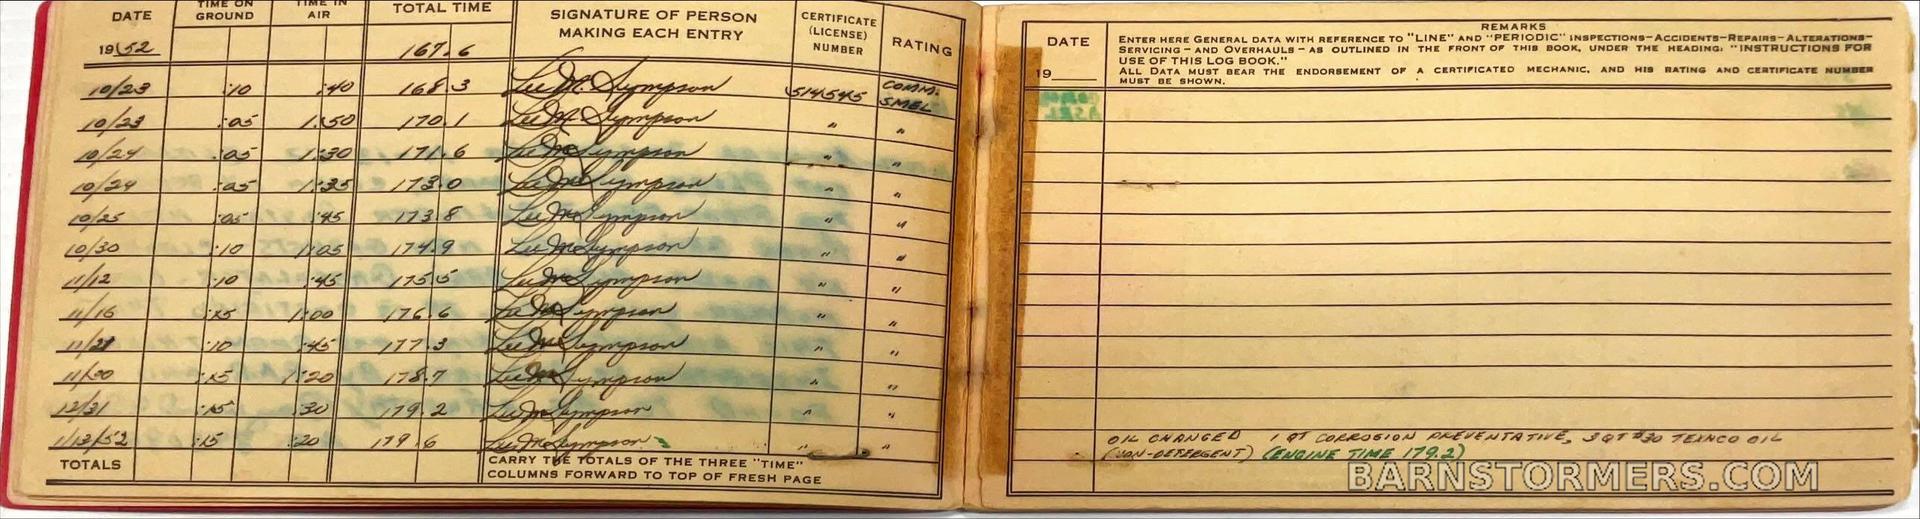 DATE TIME ON GROUND TIME IN AIR TOTAL TIME SIGNATURE OF PERSON MAKING EACH ENTRY CERTIFICATE (LICENSE) NUMBER RATING
1952 167.6
10/23 :10 :40 168.3 Lee M. Sympson 514545 COMM. SMEL
10/23 :05 1:50 170.1 Lee M Sympson " "
10/24 :05 1:30 171.6 Lee M Sympson " "
10/24 :05 1:25 173.0 Lee M Sympson " "
10/25 :05 :45 173.8 Lee M Sympson " "
10/30 :10 1:05 174.9 Lee M Sympson " "
11/12 :10 :45 175.5 Lee M Sympson " "
11/16 :15 1:00 176.6 Lee M Sympson " "
11/21 :10 :45 177.3 Lee M Sympson " "
11/30 :15 1:20 178.7 Lee M Sympson " "
12/31 :15 :30 179.2 Lee M Sympson " "
1/13/52 :15 :20 179.6 Lee M Sympson " "
TOTALS CARRY THE TOTALS OF THE THREE "TIME"
COLUMNS FORWARD TO TOP OF FRESH PAGE
DATE
19
REMARKS
ENTER HERE GENERAL DATA WITH REFERENCE TO "LINE" AND "PERIODIC" INSPECTIONS–ACCIDENTS–REPAIRS–ALTERATIONS–
SERVICING – AND OVERHAULS – AS OUTLINED IN THE FRONT OF THIS BOOK, UNDER THE HEADING: "INSTRUCTIONS FOR
USE OF THIS LOG BOOK."
ALL DATA MUST BEAR THE ENDORSEMENT OF A CERTIFICATED MECHANIC, AND HIS RATING AND CERTIFICATE NUMBER
MUST BE SHOWN.
OIL CHANGED 1 QT CORROSION PREVENTATIVE, 3 QT #30 TEXACO OIL
(NON-DETERGENT) (ENGINE TIME 179.2)
BARNSTORMERS.COM